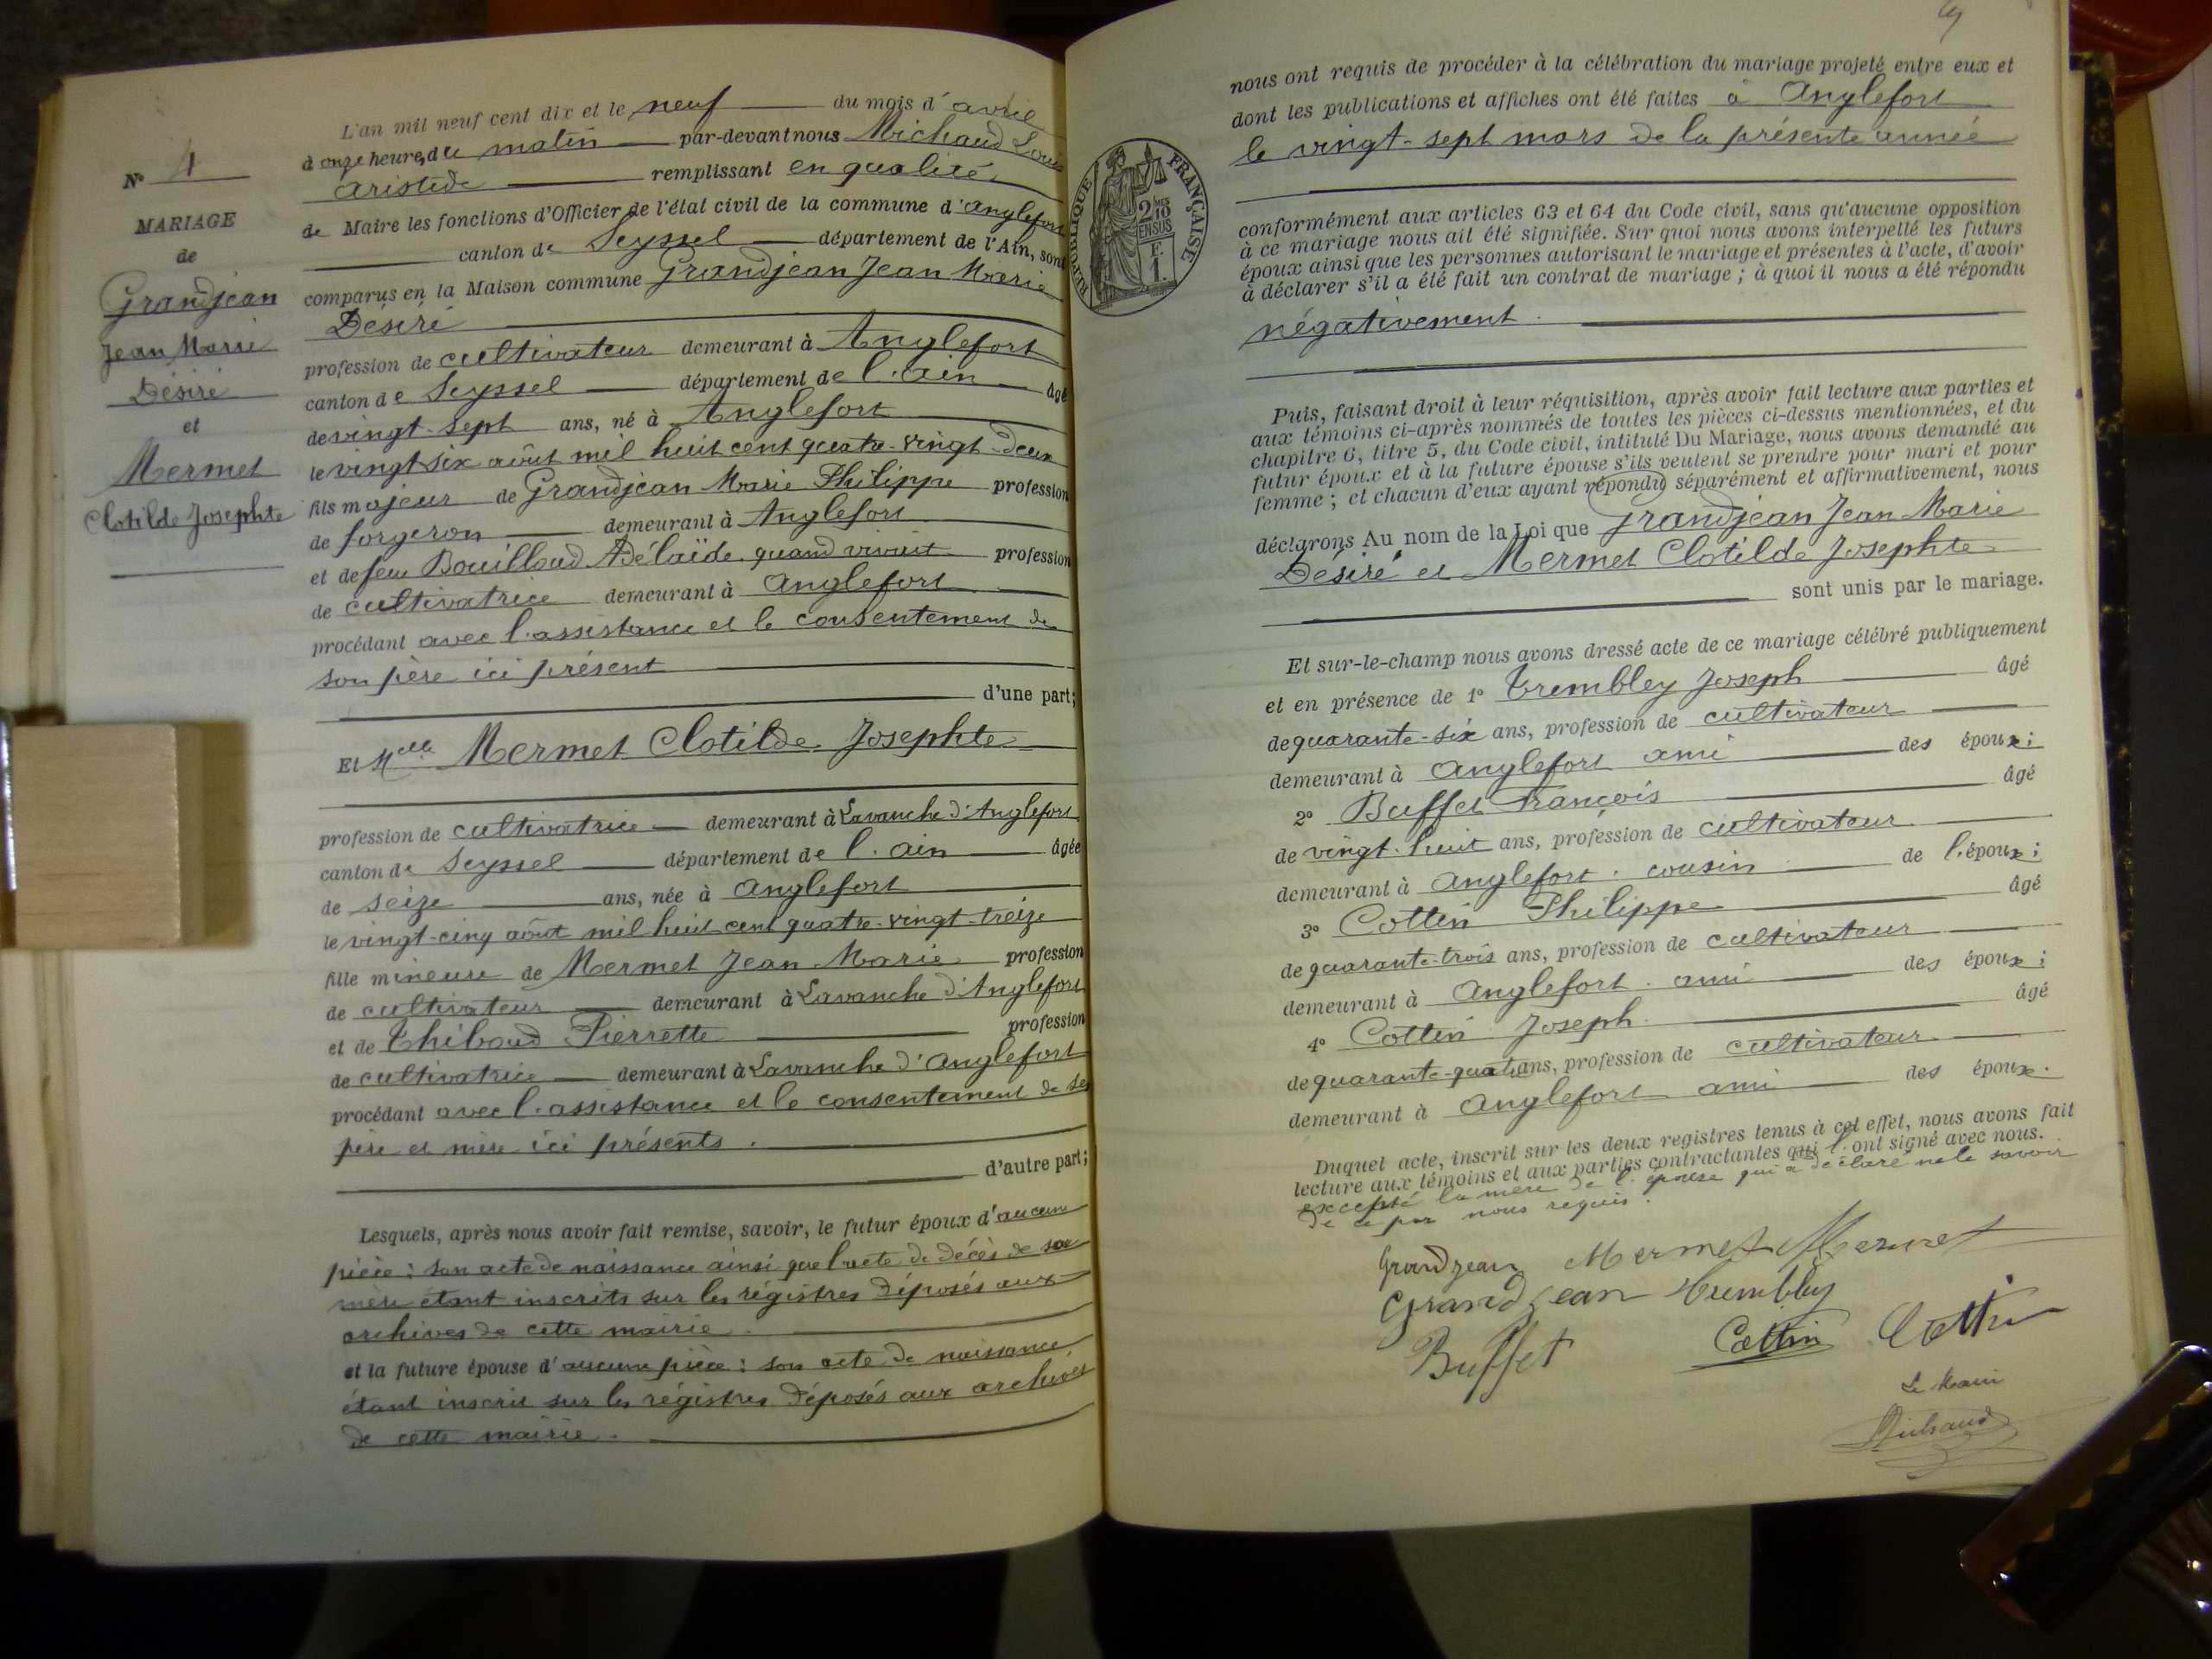 N° 4
MARIAGE
de
Grandjean
Jean Marie
Désiré
et
Mermet
Clotilde Josephte
L'an mil neuf cent dix et le neuf du mois d'avril
à onze heures du matin par-devant nous Michaud Louis
Aristide remplissant en qualité
de Maire les fonctions d'Officier de l'état civil de la commune d'Anglefort
canton de Seyssel département de l'Ain, sont
comparus en la Maison commune Grandjean Jean Marie
Désiré
profession de cultivateur demeurant à Anglefort
canton de Seyssel département de l'Ain âgé
de vingt-sept ans, né à Anglefort
le vingt six août mil huit cent quatre-vingt-deux
fils majeur de Grandjean Marie Philippe profession
de forgeron demeurant à Anglefort
et de feu Bouilloud Adélaïde quand vivait profession
de cultivatrice demeurant à Anglefort
procédant avec l'assistance et le consentement de
son père ici présent
d'une part;
Et Melle Mermet Clotilde Josephte
profession de cultivatrice demeurant à Lavanche d'Anglefort
canton de Seyssel département de l'Ain âgée
de seize ans, née à Anglefort
le vingt-cinq août mil huit cent quatre-vingt-treize
fille mineure de Mermet Jean Marie profession
de cultivateur demeurant à Lavanche d'Anglefort
et de Thiboud Pierrette profession
de cultivatrice demeurant à Lavanche d'Anglefort
procédant avec l'assistance et le consentement de se
père et mère ici présents.
d'autre part;
Lesquels, après nous avoir fait remise, savoir, le futur époux d'aucune
pièce: son acte de naissance ainsi que l'acte de décès de sa
mère étant inscrits sur les régistres déposés aux
archives de cette mairie.
et la future épouse d'aucune pièce: son acte de naissance
étant inscrit sur les régistres déposés aux archives
de cette mairie.
RÉPUBLIQUE FRANÇAISE
2/10 EN SUS
F. 1.
nous ont requis de procéder à la célébration du mariage projeté entre eux et
dont les publications et affiches ont été faites à Anglefort
le vingt-sept mars de la présente année
conformément aux articles 63 et 64 du Code civil, sans qu'aucune opposition
à ce mariage nous ait été signifiée. Sur quoi nous avons interpellé les futurs
époux ainsi que les personnes autorisant le mariage et présentes à l'acte, d'avoir
à déclarer s'il a été fait un contrat de mariage; à quoi il nous a été répondu
négativement.
Puis, faisant droit à leur réquisition, après avoir fait lecture aux parties et
aux témoins ci-après nommés de toutes les pièces ci-dessus mentionnées, et du
chapitre 6, titre 5, du Code civil, intitulé Du Mariage, nous avons demandé au
futur époux et à la future épouse s'ils veulent se prendre pour mari et pour
femme; et chacun d'eux ayant répondu séparément et affirmativement, nous
déclarons Au nom de la Loi que Grandjean Jean Marie
Désiré et Mermet Clotilde Josephte
sont unis par le mariage.
Et sur-le-champ nous avons dressé acte de ce mariage célébré publiquement
et en présence de 1° Trembley Joseph âgé
de quarante-six ans, profession de cultivateur
demeurant à Anglefort ami des époux;
2° Buffet François âgé
de vingt-huit ans, profession de cultivateur
demeurant à Anglefort. cousin de l'époux;
3° Cottin Philippe âgé
de quarante-trois ans, profession de cultivateur
demeurant à Anglefort. ami des époux;
4° Cottin Joseph âgé
de quarante-quatre ans, profession de cultivateur
demeurant à Anglefort ami des époux.
Duquel acte, inscrit sur les deux registres tenus à cet effet, nous avons fait
lecture aux témoins et aux parties contractantes qui l'ont signé avec nous.
excepté la mère de l'épouse qui a déclaré ne le savoir
de ce par nous requis.
Grandjean Mermet Mermet
Grandjean Trembley
Buffet Cottin Cottin
Le Maire
Michaud